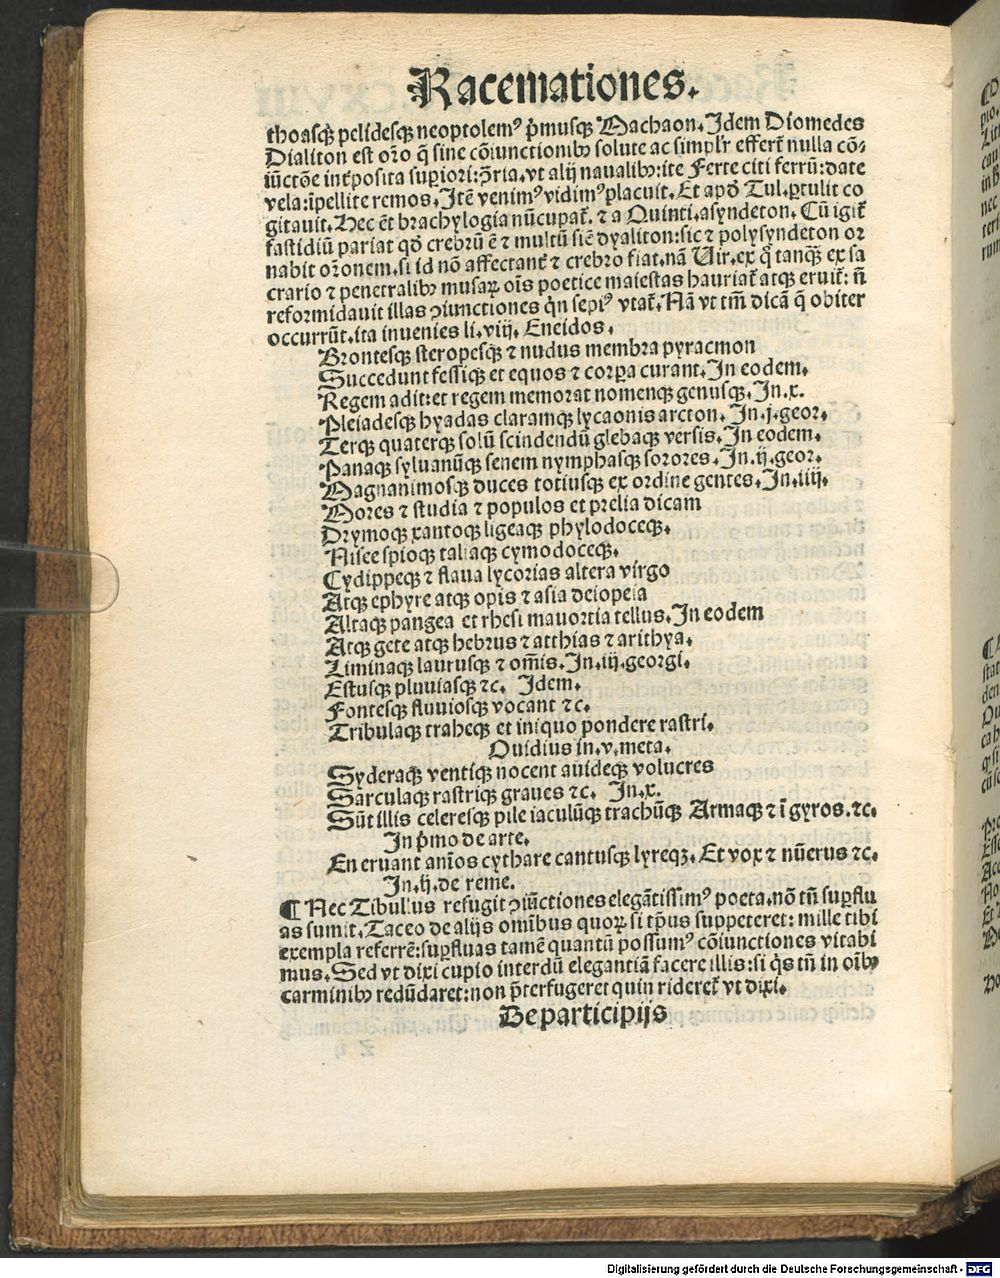 Racemationes.
thoasq̃ pelidesq̃ neoptolemꝰ p̃musq̃ Machaon. Idem Diomedes
Dialiton est or̃o q̃ sine cõiunctionibꝫ solute ac simpl'r effert̃ nulla cõ⸗
iũctõe int̃posita supiori: ꝯ̃ria. vt alij naualibꝫ: ite Ferte citi ferrũ: date
vela: ĩpellite remos. Itẽ venimꝰ vidimꝰ placuit. Et apð Tul. ꝑtulit co
gitauit. Hec ẽt brachylogia nũcupat̃. ⁊ a Quinti. asyndeton. Cũ igit̃
fastidiũ pariat qð crebrũ ẽ ⁊ multũ siẽ dyaliton: sic ⁊ polysyndeton or
nabit or̃onem. si id nõ affectant̃ ⁊ crebro fiat. nã Uir. ex q̃ tanq̃ ex sa
crario ⁊ penetralibꝫ musaꝝ oĩs poetice maiestas hauriat̃ atqꝫ eruit̃: ñ
reformidauit illas ꝯiunctiones q̃n sepiꝰ vtat̃. Nã vt tm̃ dicã q̃ obiter
occurrũt. ita inuenies li. viij. Eneidos.
Brontesq̃ steropesq̃ ⁊ nudus membra pyracmon
Succedunt fessiq̃ et equos ⁊ corꝑa curant. In eodem.
Regem adit: et regem memorat nomenq̃ genusq̃. In. x.
Pleiadesq̃ hyadas claramq̃ lycaonis arcton. In. j. geor.
Terq̃ quaterq̃ solũ scindendũ glebaq̃ versis. In eodem.
Panaq̃ syluanũq̃ senem nymphasq̃ sorores. In. ij. geor.
Magnanimosq̃ duces totiusq̃ ex ordine gentes. In. iiij.
Mores ⁊ studia ⁊ populos et prelia dicam
Drymoq̃ xantoq̃ ligeaq̃ phylodoceq̃.
Nisee spioq̃ taliaq̃ cymodoceq̃.
Cydippeq̃ ⁊ flaua lycorias altera virgo
Atq̃ ephyre atq̃ opis ⁊ asia deiopeia
Altaq̃ pangea et rhesi mauortia tellus. In eodem
Atq̃ gete atq̃ hebrus ⁊ atthias ⁊ arithya.
Liminaq̃ laurusq̃ ⁊ om̃is. In. iij. georgi.
Estusq̃ pluuiasq̃ ⁊c. Idem.
Fontesq̃ fluuiosq̃ vocant ⁊c.
Tribulaq̃ traheq̃ et iniquo pondere rastri.
Ouidius in. v. meta.
Syderaq̃ ventiq̃ nocent auideq̃ volucres
Sarculaq̃ rastriq̃ graues ⁊c. In. x.
Sũt illis celeresq̃ pile iaculũq̃ trachũq̃ Armaq̃ ⁊ ĩ gyros. ⁊c.
In p̃mo de arte.
En eruant anĩos cythare cantusq̃ lyreqꝫ. Et vox ⁊ nũerus ⁊c.
In. ij. de reme.
¶ Nec Tibullus refugit ꝯiũctiones elegãtissimꝰ poeta. nõ tñ suꝑflu
as sumit. Taceo de alijs omĩbus quoꝝ si tp̃us suppeteret: mille tibi
exempla referrẽ: suꝑfluas tamẽ quantũ possumꝰ cõiunctiones vitabi
mus. Sed vt dixi cupio interdũ elegantiã facere illis: si q̃s tñ in oĩbꝫ
carminibꝫ redũdaret: non p̃terfugeret quin rideret̃ vt dixi.
De participijs
Digitalisierung gefördert durch die Deutsche Forschungsgemeinschaft - DFG